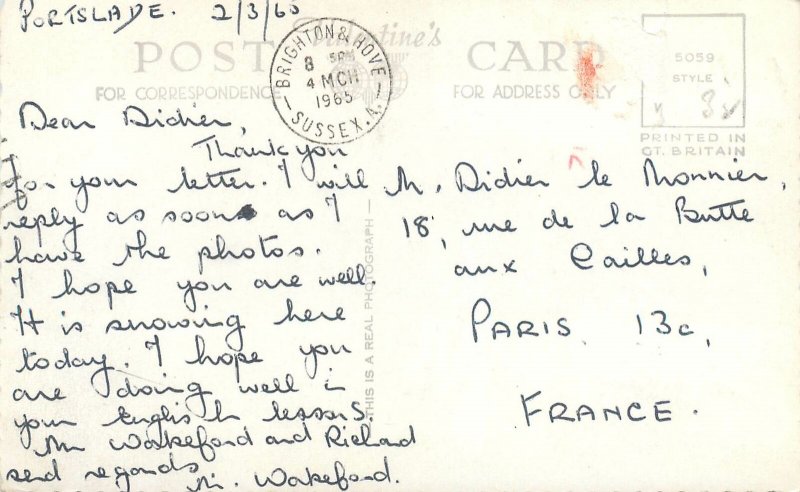 PORTSLADE. 2/3/65
Valentine's
POST CARD
FOR CORRESPONDENCE
FOR ADDRESS ONLY
BRIGHTON & HOVE
8
4 MCH
1965
SUSSEX.
5059
STYLE
PRINTED IN
GT. BRITAIN
Dear Didier,
Thank you
for your letter. I will
reply as soon as I
have the photos.
I hope you are well.
It is snowing here
today. I hope you
are doing well in
your English lessons.
Mr Wakeford and Richard
send regards
M. Wakeford.
THIS IS A REAL PHOTOGRAPH
M. Didier le Monnier,
18, rue de la Butte
aux Cailles,
PARIS 13e,
FRANCE.